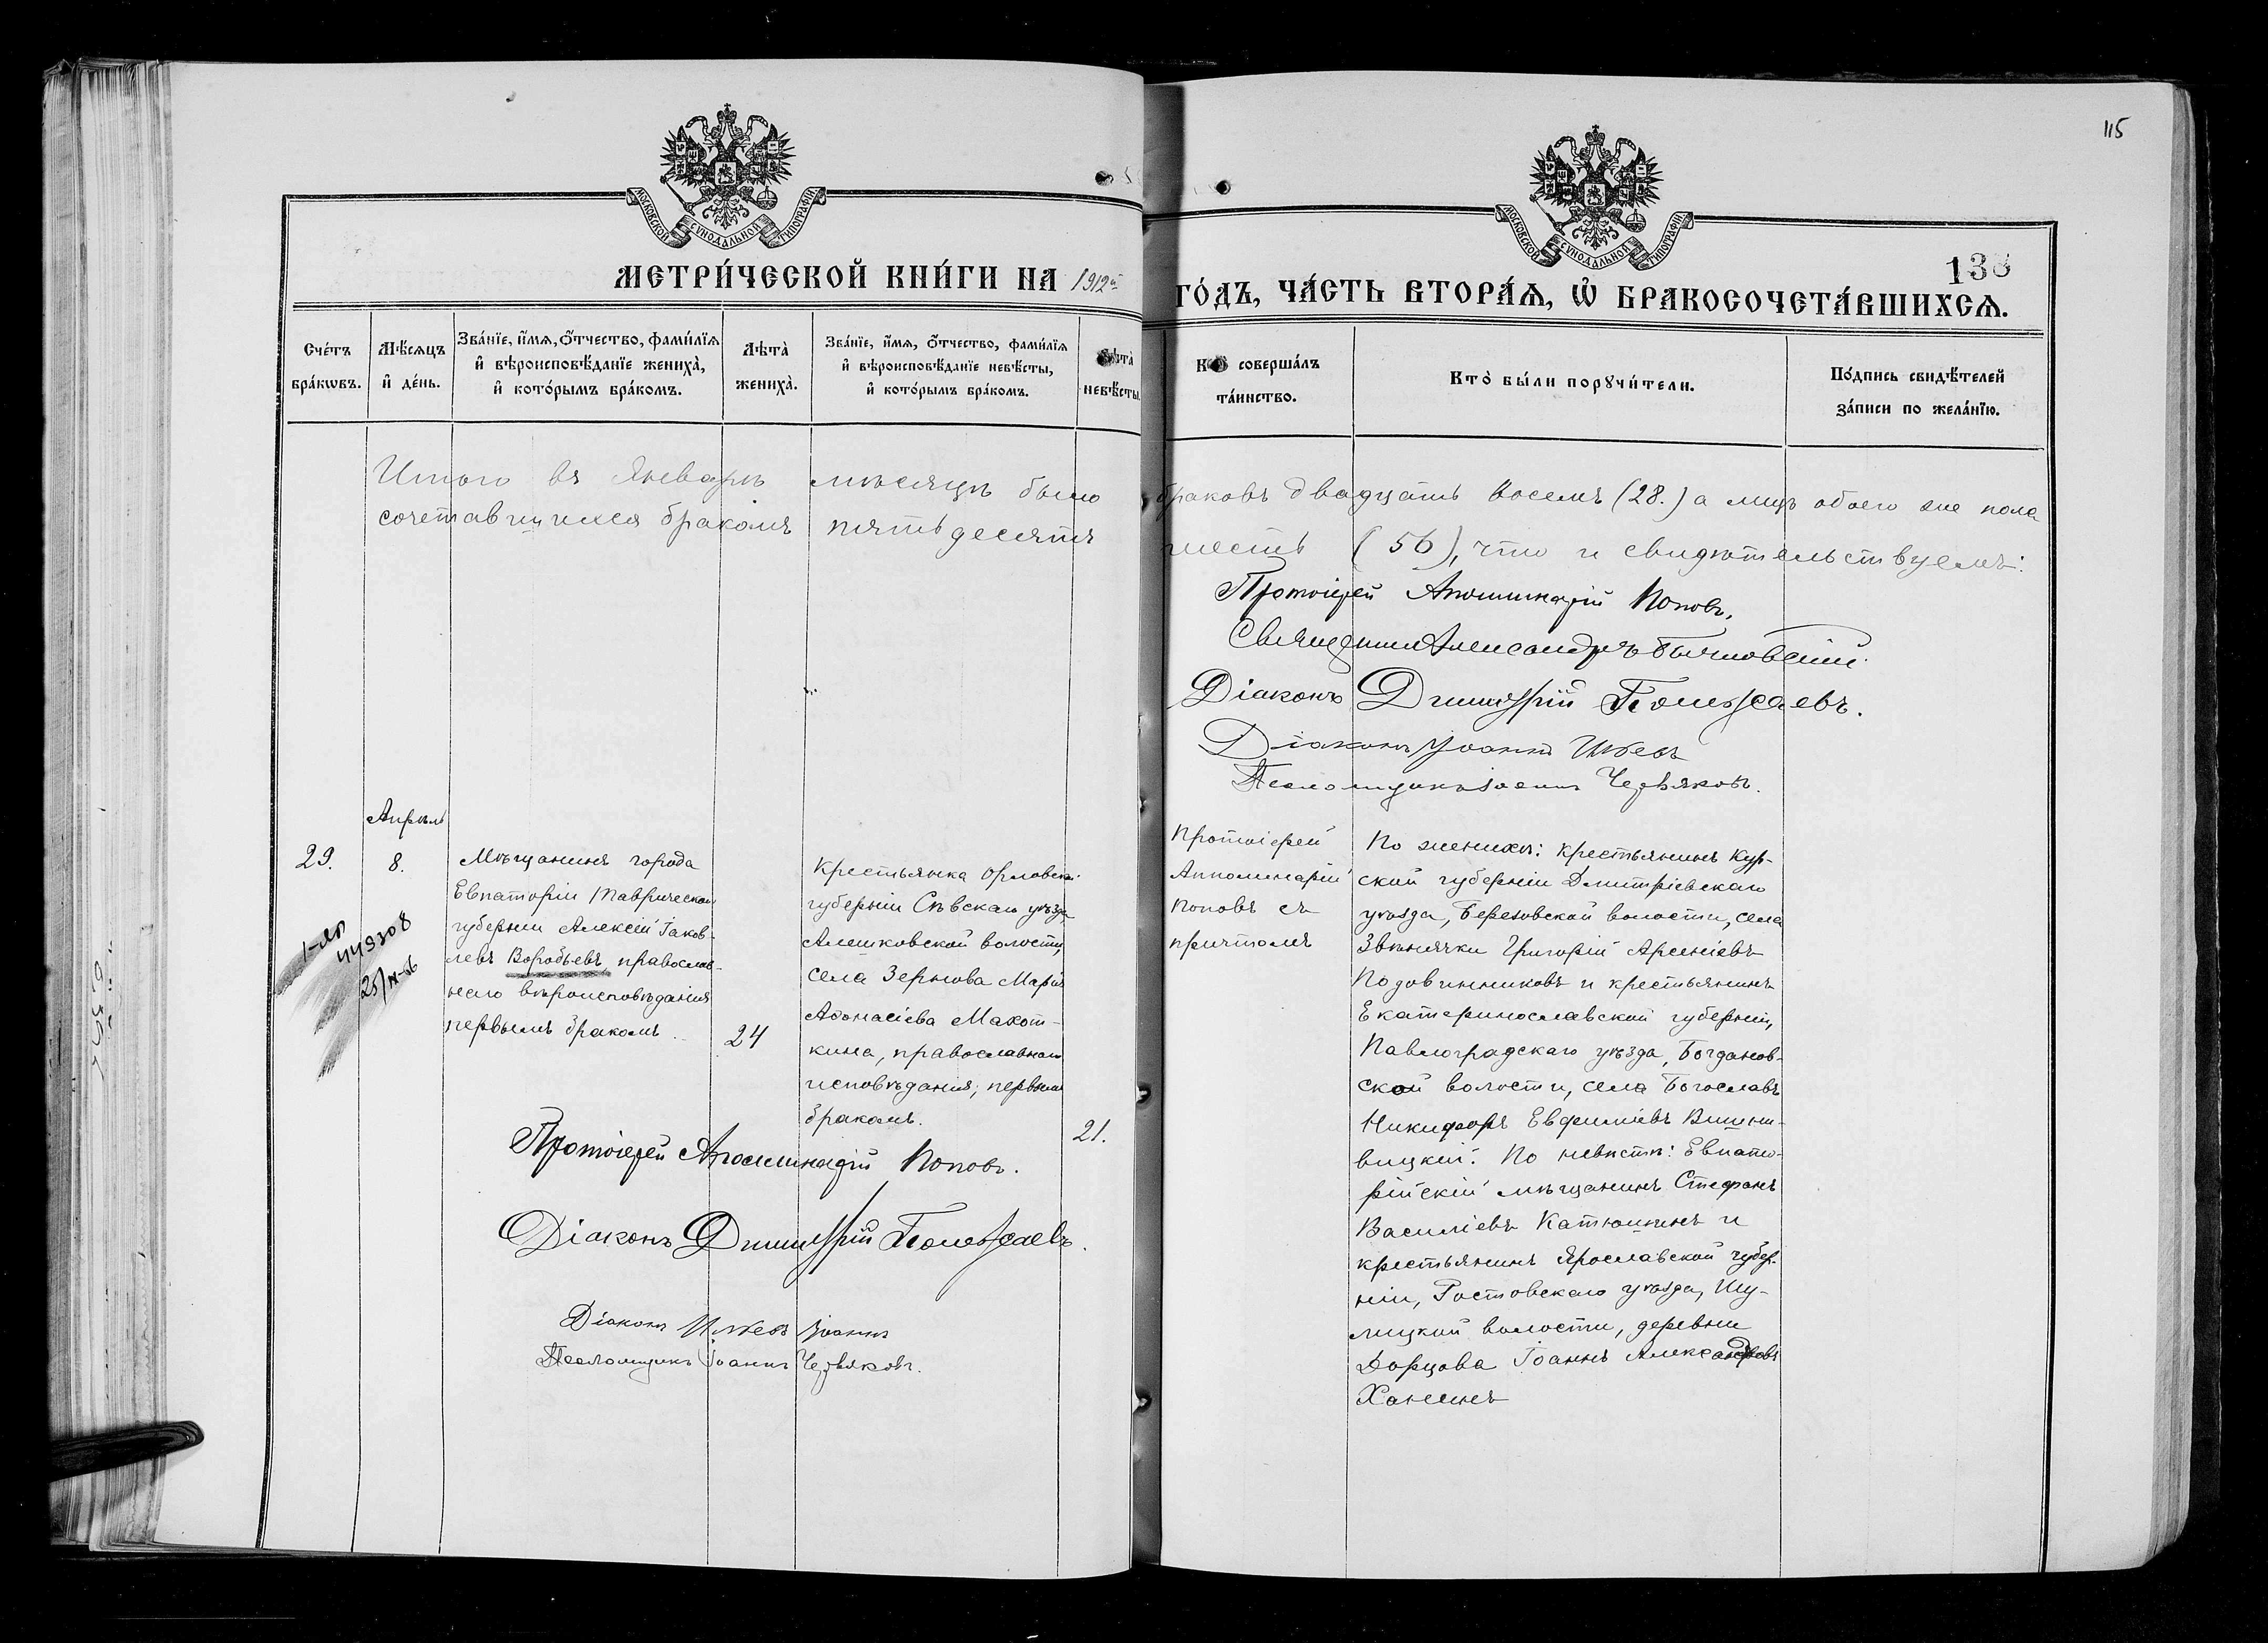 115
МОСКОВСКОЙ СѴНОДАЛЬНОЙ ТИПОГРАФІИ
МОСКОВСКОЙ СѴНОДАЛЬНОЙ ТИПОГРАФІИ
МЕТРИ́ЧЕСКОЙ КНИ́ГИ НА 1912й
ГО́ДЪ, ЧА́СТЬ ВТОРА́Ѧ, Ѽ БРАКОСОЧЕТА́ВШИХСѦ.
Сче́тъ
бра́кѡвъ.
Мѣ́сѧцъ
и҆ де́нь.
Зва́нїе, и҆́мѧ, о҆́тчество, фами́лїѧ
и҆ вѣроисповѣ́данїе жениха̀,
и҆ кото́рымъ бра́комъ.
Лѣта̀
жениха̀.
Зва́нїе, и҆́мѧ, о҆́тчество, фами́лїѧ
и҆ вѣроисповѣ́данїе невѣ́сты,
и҆ кото́рымъ бра́комъ.
Лѣта̀
невѣ́сты.
Кто̀ соверша́лъ
та́инство.
Кто̀ бы́ли порꙋчи́тели.
По́дпись свидѣ́телей
за́писи по жела́нїю.
Итого въ Январѣ мѣсяцѣ было браковъ двадцать восемь (28.) а лицъ обоего же пола
сочетавшихся бракомъ пятьдесятъ шесть (56), что и свидѣтельствуемъ:
Протоіерей Апполинарій Поповъ.
Священникъ Александръ
Діаконъ Димитрій
Діаконъ Іоаннъ
Псаломщикъ Іоаннъ Червяковъ.
Апрѣль
29.
8.
449308
Мѣщанинъ города
Евпаторіи Таврической
губерніи Алексѣй Іаков-
левъ Воробьевъ, православ-
наго вѣроисповѣданія
первымъ бракомъ.
24
Крестьянка Орловской
губерніи Сѣвскаго уѣзда
Алешковской волости,
села Зернова Марія
Аѳонасіева Макот-
кина, православнаго
исповѣданія, первымъ
бракомъ.
21.
Протоіерей
Апполинарій
Поповъ съ
причтомъ
По женихѣ: крестьянинъ Кур-
ской губерніи Дмитріевскаго
уѣзда, Березовской волости, села
Звѣнячки Григорій Арсеніевъ
Подовинниковъ и крестьянинъ
Екатеринославской губерніи,
Павлоградскаго уѣзда, Богданов-
ской волости, села Богославъ
Никифоръ Евфиміевъ Вишни-
вицкій. По невѣстѣ: Евпато-
рійскій мѣщанинъ Стефанъ
Василіевъ Катюшинъ и
крестьянинъ Ярославской губер-
ніи, Ростовскаго уѣзда, Шу-
лицкой волости, деревни
Дорцова Іоаннъ Александровъ
Ханинъ
Протоіерей Апполинарій Поповъ.
Діаконъ Димитрій
Діаконъ Іоаннъ
Псаломщикъ Іоаннъ Червяковъ.